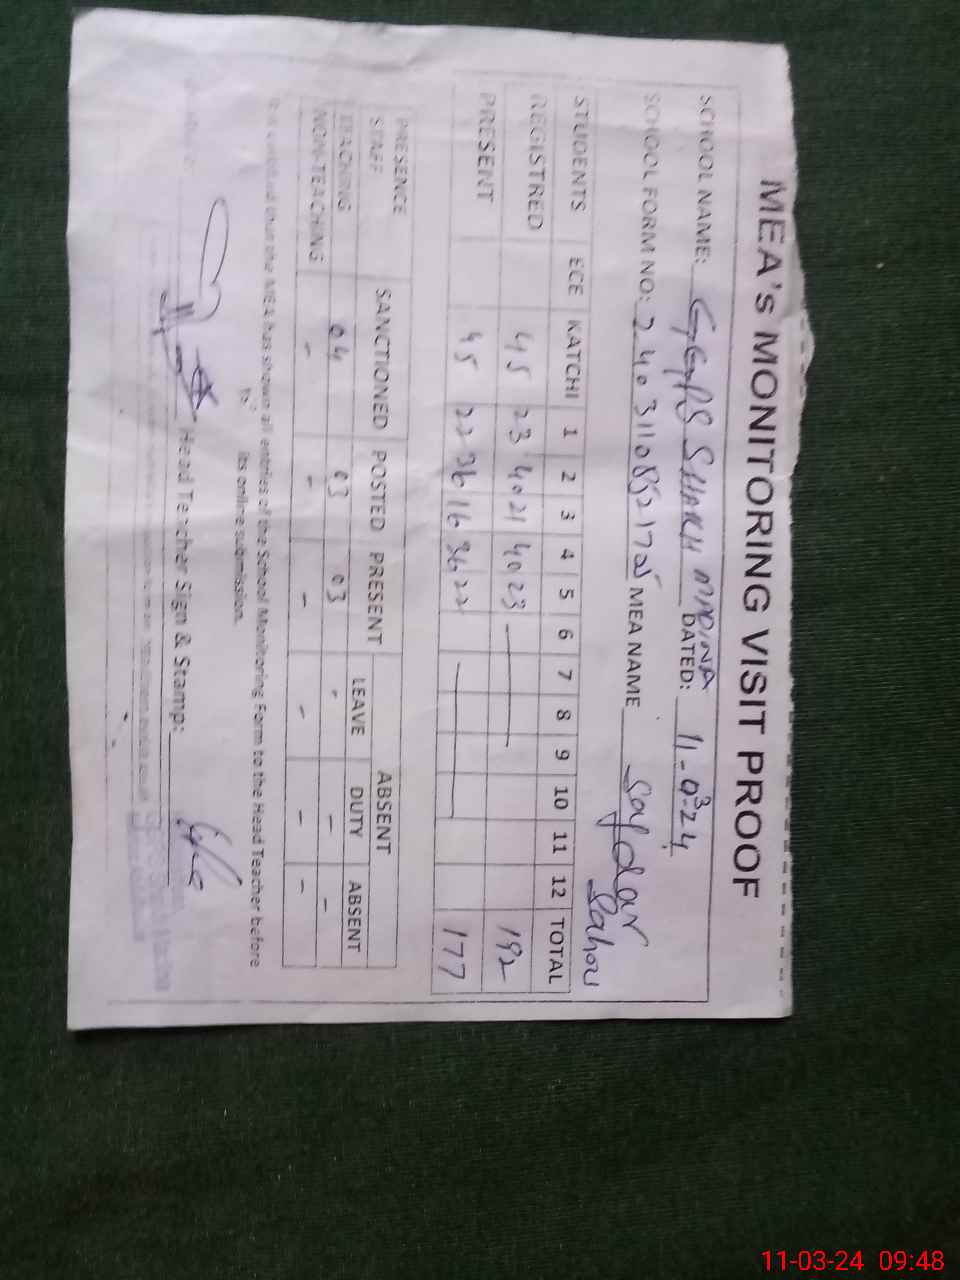 MEA's MONITORING VISIT PROOF
SCHOOL NAME: GGPS SHAKH MADINA DATED: 11-03-24
SCHOOL FORM NO: MEA NAME Safdar
STUDENTS ECE KATCHI 1 2 3 4 5 6 7 8 9 10 11 12 TOTAL
REGISTRED 45 23 40 21 40 23 192
PRESENT 45 22 36 16 36 22 177
PRESENCE SANCTIONED POSTED PRESENT ABSENT
STAFF LEAVE DUTY ABSENT
TEACHING 04 03 03 - - -
NON-TEACHING - - - - - -
that the MEA has shown all entries of the School Monitoring Form to the Head Teacher before
its online submission.
Head Teacher Sign & Stamp:
11-03-24 09:48